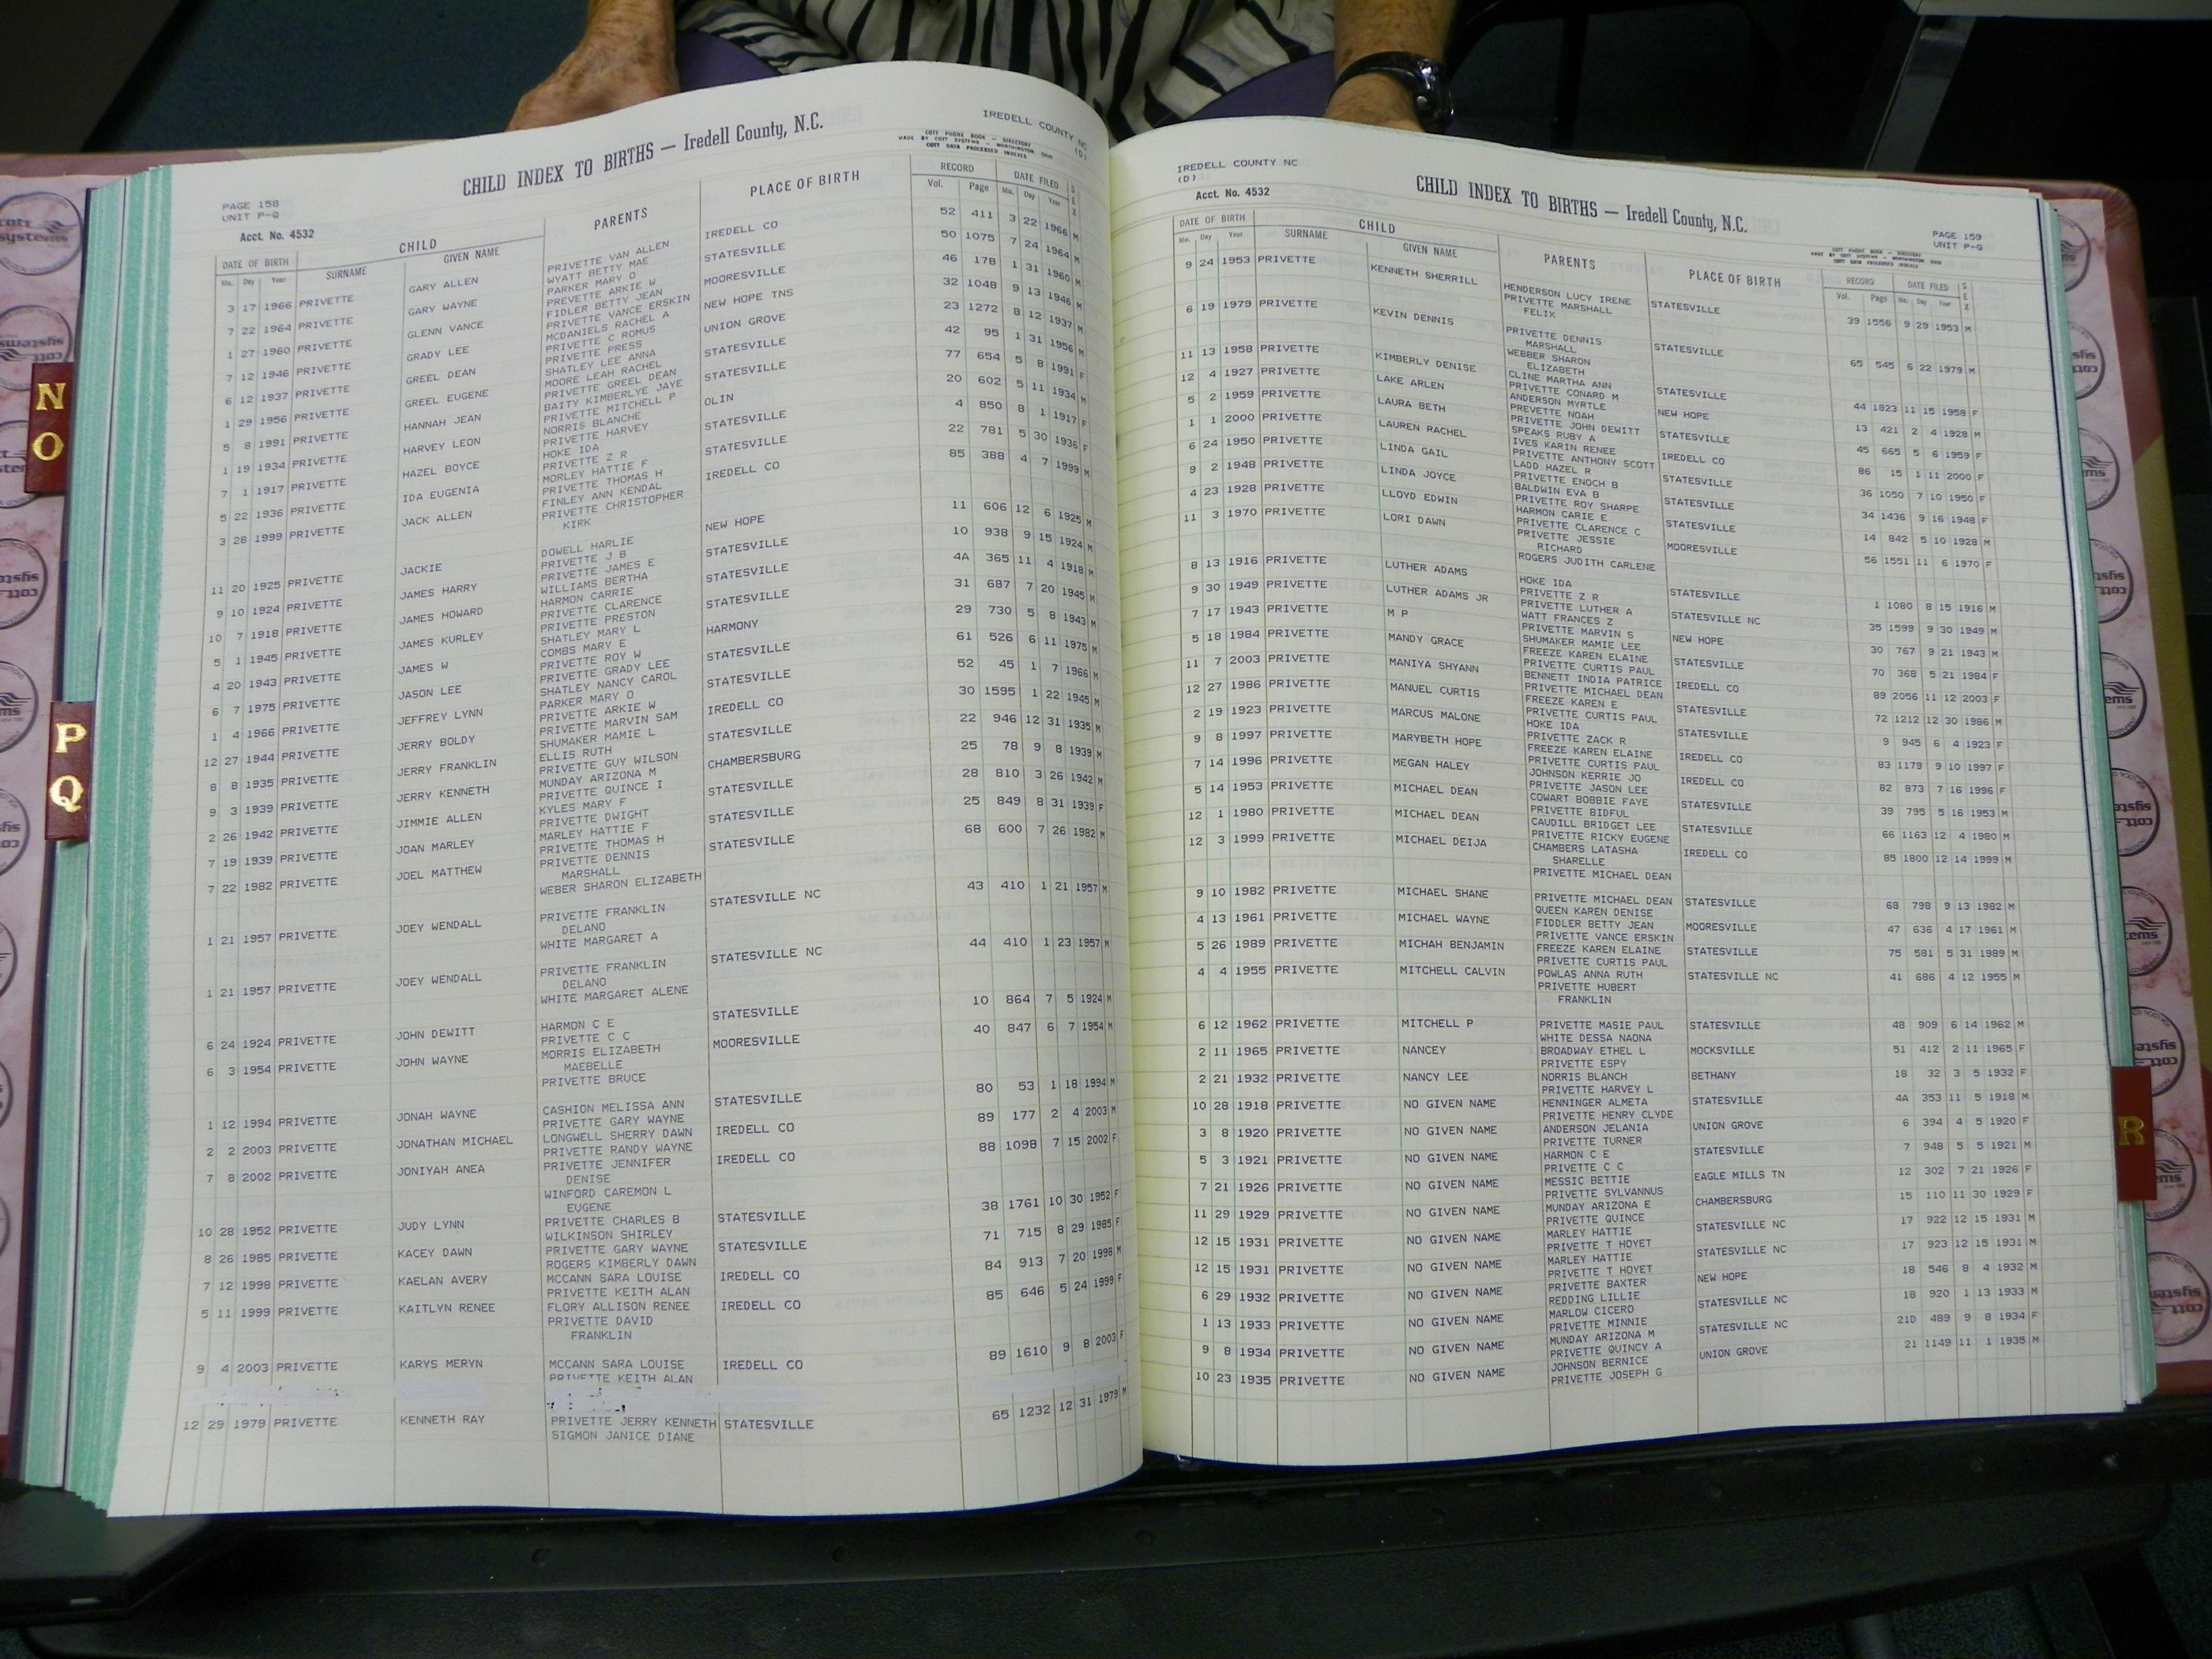 CHILD INDEX TO BIRTHS — Iredell County, N.C.
IREDELL COUNTY NC
(D)
COTT PHONE BOOK — DIRECTORY
MADE BY COTT SYSTEMS — WORTHINGTON, OHIO
COTT DATA PROCESSED INDEXES
PAGE 158
UNIT P-Q
Acct. No. 4532
DATE OF BIRTH CHILD PARENTS PLACE OF BIRTH RECORD DATE FILED SEX
Mo. Day Year SURNAME GIVEN NAME Vol. Page Mo. Day Year
3 17 1966 PRIVETTE GARY ALLEN PRIVETTE VAN ALLEN IREDELL CO 52 411 3 22 1966 M
WYATT BETTY MAE
7 22 1964 PRIVETTE GARY WAYNE PARKER MARY O STATESVILLE 50 1075 7 24 1964 M
PREVETTE ARKIE W
1 27 1960 PRIVETTE GLENN VANCE FIDLER BETTY JEAN MOORESVILLE 46 178 1 31 1960 M
PRIVETTE VANCE ERSKIN
7 12 1946 PRIVETTE GRADY LEE MCDANIELS RACHEL A NEW HOPE TNS 32 1048 9 13 1946 M
PRIVETTE C ROMUS
6 12 1937 PRIVETTE GREEL DEAN PRIVETTE PRESS UNION GROVE 23 1272 8 12 1937 M
SHATLEY LEE ANNA
1 29 1956 PRIVETTE GREEL EUGENE MOORE LEAH RACHEL STATESVILLE 42 95 1 31 1956 M
PRIVETTE GREEL DEAN
5 8 1991 PRIVETTE HANNAH JEAN BAITY KIMBERLYE JAYE STATESVILLE 77 654 5 8 1991 F
PRIVETTE MITCHELL P
1 19 1934 PRIVETTE HARVEY LEON NORRIS BLANCHE OLIN 20 602 5 11 1934 M
PRIVETTE HARVEY
7 1 1917 PRIVETTE HAZEL BOYCE HOKE IDA STATESVILLE 4 850 8 1 1917 F
PRIVETTE Z R
5 22 1936 PRIVETTE IDA EUGENIA MORLEY HATTIE F STATESVILLE 22 781 5 30 1936 F
PRIVETTE THOMAS H
3 28 1999 PRIVETTE JACK ALLEN FINLEY ANN KENDAL IREDELL CO 85 388 4 7 1999 M
PRIVETTE CHRISTOPHER
KIRK
11 20 1925 PRIVETTE JACKIE DOWELL HARLIE NEW HOPE 11 606 12 6 1925 M
PRIVETTE J B
9 10 1924 PRIVETTE JAMES HARRY PRIVETTE JAMES E STATESVILLE 10 938 9 15 1924 M
WILLIAMS BERTHA
10 7 1918 PRIVETTE JAMES HOWARD HARMON CARRIE STATESVILLE 4A 365 11 4 1918 M
PRIVETTE CLARENCE
5 1 1945 PRIVETTE JAMES KURLEY PRIVETTE PRESTON STATESVILLE 31 687 7 20 1945 M
SHATLEY MARY L
4 20 1943 PRIVETTE JAMES W COMBS MARY E HARMONY 29 730 5 8 1943 M
PRIVETTE ROY W
6 7 1975 PRIVETTE JASON LEE PRIVETTE GRADY LEE STATESVILLE 61 526 6 11 1975 M
SHATLEY NANCY CAROL
1 4 1966 PRIVETTE JEFFREY LYNN PARKER MARY O STATESVILLE 52 45 1 7 1966 M
PRIVETTE ARKIE W
12 27 1944 PRIVETTE JERRY BOLDY PRIVETTE MARVIN SAM IREDELL CO 30 1595 1 22 1945 M
SHUMAKER MAMIE L
8 8 1935 PRIVETTE JERRY FRANKLIN ELLIS RUTH STATESVILLE 22 946 12 31 1935 M
PRIVETTE GUY WILSON
9 3 1939 PRIVETTE JERRY KENNETH MUNDAY ARIZONA M CHAMBERSBURG 25 78 9 8 1939 M
PRIVETTE QUINCE I
2 26 1942 PRIVETTE JIMMIE ALLEN KYLES MARY F STATESVILLE 28 810 3 26 1942 M
PRIVETTE DWIGHT
7 19 1939 PRIVETTE JOAN MARLEY MARLEY HATTIE F STATESVILLE 25 849 8 31 1939 F
PRIVETTE THOMAS H
7 22 1982 PRIVETTE JOEL MATTHEW PRIVETTE DENNIS STATESVILLE 68 600 7 26 1982 M
MARSHALL
WEBER SHARON ELIZABETH
1 21 1957 PRIVETTE JOEY WENDALL PRIVETTE FRANKLIN STATESVILLE NC 43 410 1 21 1957 M
DELANO
WHITE MARGARET A
1 21 1957 PRIVETTE JOEY WENDALL PRIVETTE FRANKLIN STATESVILLE NC 44 410 1 23 1957 M
DELANO
WHITE MARGARET ALENE
6 24 1924 PRIVETTE JOHN DEWITT HARMON C E STATESVILLE 10 864 7 5 1924 M
PRIVETTE C C
6 3 1954 PRIVETTE JOHN WAYNE MORRIS ELIZABETH MOORESVILLE 40 847 6 7 1954 M
MAEBELLE
PRIVETTE BRUCE
1 12 1994 PRIVETTE JONAH WAYNE CASHION MELISSA ANN STATESVILLE 80 53 1 18 1994 M
PRIVETTE GARY WAYNE
2 2 2003 PRIVETTE JONATHAN MICHAEL LONGWELL SHERRY DAWN IREDELL CO 89 177 2 4 2003 M
PRIVETTE RANDY WAYNE
7 8 2002 PRIVETTE JONIYAH ANEA PRIVETTE JENNIFER IREDELL CO 88 1098 7 15 2002 F
DENISE
WINFORD CAREMON L
EUGENE
10 28 1952 PRIVETTE JUDY LYNN PRIVETTE CHARLES B STATESVILLE 38 1761 10 30 1952 F
WILKINSON SHIRLEY
8 26 1985 PRIVETTE KACEY DAWN PRIVETTE GARY WAYNE STATESVILLE 71 715 8 29 1985 F
ROGERS KIMBERLY DAWN
7 12 1998 PRIVETTE KAELAN AVERY MCCANN SARA LOUISE IREDELL CO 84 913 7 20 1998 M
PRIVETTE KEITH ALAN
5 11 1999 PRIVETTE KAITLYN RENEE FLORY ALLISON RENEE IREDELL CO 85 646 5 24 1999 F
PRIVETTE DAVID
FRANKLIN
9 4 2003 PRIVETTE KARYS MERYN MCCANN SARA LOUISE IREDELL CO 89 1610 9 8 2003 F
PRIVETTE KEITH ALAN
12 29 1979 PRIVETTE KENNETH RAY PRIVETTE JERRY KENNETH STATESVILLE 65 1232 12 31 1979 M
SIGMON JANICE DIANE
IREDELL COUNTY NC
(D)
CHILD INDEX TO BIRTHS — Iredell County, N.C.
Acct. No. 4532
PAGE 159
UNIT P-Q
COTT PHONE BOOK — DIRECTORY
MADE BY COTT SYSTEMS — WORTHINGTON, OHIO
COTT DATA PROCESSED INDEXES
DATE OF BIRTH CHILD PARENTS PLACE OF BIRTH RECORD DATE FILED SEX
Mo. Day Year SURNAME GIVEN NAME Vol. Page Mo. Day Year
9 24 1953 PRIVETTE KENNETH SHERRILL HENDERSON LUCY IRENE STATESVILLE 39 1556 9 29 1953 M
PRIVETTE MARSHALL
FELIX
6 19 1979 PRIVETTE KEVIN DENNIS PRIVETTE DENNIS STATESVILLE 65 545 6 22 1979 M
MARSHALL
WEBBER SHARON
ELIZABETH
11 13 1958 PRIVETTE KIMBERLY DENISE CLINE MARTHA ANN STATESVILLE 44 1823 11 15 1958 F
PRIVETTE CONARD M
12 4 1927 PRIVETTE LAKE ARLEN ANDERSON MYRTLE NEW HOPE 13 421 2 4 1928 M
PREVETTE NOAH
5 2 1959 PRIVETTE LAURA BETH PRIVETTE JOHN DEWITT STATESVILLE 45 665 5 6 1959 F
SPEAKS RUBY A
1 1 2000 PRIVETTE LAUREN RACHEL IVES KARIN RENEE IREDELL CO 86 15 1 11 2000 F
PRIVETTE ANTHONY SCOTT
6 24 1950 PRIVETTE LINDA GAIL LADD HAZEL R STATESVILLE 36 1050 7 10 1950 F
PRIVETTE ENOCH B
9 2 1948 PRIVETTE LINDA JOYCE BALDWIN EVA B STATESVILLE 34 1436 9 16 1948 F
PRIVETTE ROY SHARPE
4 23 1928 PRIVETTE LLOYD EDWIN HARMON CARIE E STATESVILLE 14 842 5 10 1928 M
PRIVETTE CLARENCE C
11 3 1970 PRIVETTE LORI DAWN PRIVETTE JESSIE MOORESVILLE 56 1551 11 6 1970 F
RICHARD
ROGERS JUDITH CARLENE
8 13 1916 PRIVETTE LUTHER ADAMS HOKE IDA STATESVILLE 1 1080 8 15 1916 M
PRIVETTE Z R
9 30 1949 PRIVETTE LUTHER ADAMS JR PRIVETTE LUTHER A STATESVILLE NC 35 1599 9 30 1949 M
WATT FRANCES Z
7 17 1943 PRIVETTE M P PRIVETTE MARVIN S NEW HOPE 30 767 9 21 1943 M
SHUMAKER MAMIE LEE
5 18 1984 PRIVETTE MANDY GRACE FREEZE KAREN ELAINE STATESVILLE 70 368 5 21 1984 F
PRIVETTE CURTIS PAUL
11 7 2003 PRIVETTE MANIYA SHYANN BENNETT INDIA PATRICE IREDELL CO 89 2056 11 12 2003 F
PRIVETTE MICHAEL DEAN
12 27 1986 PRIVETTE MANUEL CURTIS FREEZE KAREN E STATESVILLE 72 1212 12 30 1986 M
PRIVETTE CURTIS PAUL
2 19 1923 PRIVETTE MARCUS MALONE HOKE IDA STATESVILLE 9 945 6 4 1923 F
PRIVETTE ZACK R
9 8 1997 PRIVETTE MARYBETH HOPE FREEZE KAREN ELAINE IREDELL CO 83 1179 9 10 1997 F
PRIVETTE CURTIS PAUL
7 14 1996 PRIVETTE MEGAN HALEY JOHNSON KERRIE JO IREDELL CO 82 873 7 16 1996 F
PRIVETTE JASON LEE
5 14 1953 PRIVETTE MICHAEL DEAN COWART BOBBIE FAYE STATESVILLE 39 795 5 16 1953 M
PRIVETTE BIDFUL
12 1 1980 PRIVETTE MICHAEL DEAN CAUDILL BRIDGET LEE STATESVILLE 66 1163 12 4 1980 M
PRIVETTE RICKY EUGENE
12 3 1999 PRIVETTE MICHAEL DEIJA CHAMBERS LATASHA IREDELL CO 85 1800 12 14 1999 M
SHARELLE
PRIVETTE MICHAEL DEAN
9 10 1982 PRIVETTE MICHAEL SHANE PRIVETTE MICHAEL DEAN STATESVILLE 68 798 9 13 1982 M
QUEEN KAREN DENISE
4 13 1961 PRIVETTE MICHAEL WAYNE FIDDLER BETTY JEAN MOORESVILLE 47 636 4 17 1961 M
PRIVETTE VANCE ERSKIN
5 26 1989 PRIVETTE MICHAH BENJAMIN FREEZE KAREN ELAINE STATESVILLE 75 581 5 31 1989 M
PRIVETTE CURTIS PAUL
4 4 1955 PRIVETTE MITCHELL CALVIN POWLAS ANNA RUTH STATESVILLE NC 41 686 4 12 1955 M
PRIVETTE HUBERT
FRANKLIN
6 12 1962 PRIVETTE MITCHELL P PRIVETTE MASIE PAUL STATESVILLE 48 909 6 14 1962 M
WHITE DESSA NAONA
2 11 1965 PRIVETTE NANCEY BROADWAY ETHEL L MOCKSVILLE 51 412 2 11 1965 F
PRIVETTE ESPY
2 21 1932 PRIVETTE NANCY LEE NORRIS BLANCH BETHANY 18 32 3 5 1932 F
PRIVETTE HARVEY L
10 28 1918 PRIVETTE NO GIVEN NAME HENNINGER ALMETA STATESVILLE 4A 353 11 5 1918 M
PRIVETTE HENRY CLYDE
3 8 1920 PRIVETTE NO GIVEN NAME ANDERSON JELANIA UNION GROVE 6 394 4 5 1920 F
PRIVETTE TURNER
5 3 1921 PRIVETTE NO GIVEN NAME HARMON C E STATESVILLE 7 948 5 5 1921 M
PRIVETTE C C
7 21 1926 PRIVETTE NO GIVEN NAME MESSIC BETTIE EAGLE MILLS TN 12 302 7 21 1926 F
PRIVETTE SYLVANNUS
11 29 1929 PRIVETTE NO GIVEN NAME MUNDAY ARIZONA E CHAMBERSBURG 15 110 11 30 1929 F
PRIVETTE QUINCE
12 15 1931 PRIVETTE NO GIVEN NAME MARLEY HATTIE STATESVILLE NC 17 922 12 15 1931 M
PRIVETTE T HOYET
12 15 1931 PRIVETTE NO GIVEN NAME MARLEY HATTIE STATESVILLE NC 17 923 12 15 1931 M
PRIVETTE T HOYET
6 29 1932 PRIVETTE NO GIVEN NAME PRIVETTE BAXTER NEW HOPE 18 546 8 4 1932 M
REDDING LILLIE
1 13 1933 PRIVETTE NO GIVEN NAME MARLOW CICERO STATESVILLE NC 18 920 1 13 1933 M
PRIVETTE MINNIE
9 8 1934 PRIVETTE NO GIVEN NAME MUNDAY ARIZONA M STATESVILLE NC 21D 489 9 8 1934 F
PRIVETTE QUINCY A
10 23 1935 PRIVETTE NO GIVEN NAME JOHNSON BERNICE UNION GROVE 21 1149 11 1 1935 M
PRIVETTE JOSEPH G
N
O
P
Q
R
cott
systems